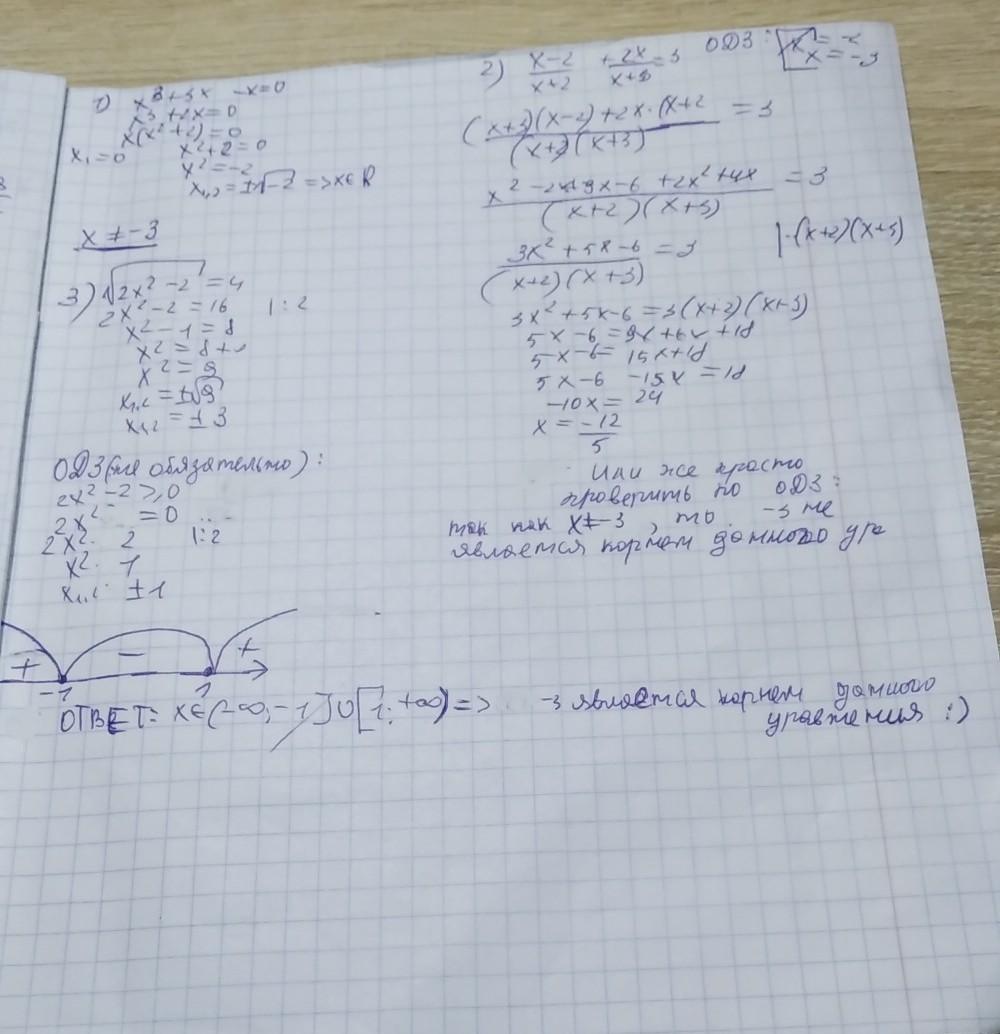 1) x³+3x -x=0
x³+2x=0
x(x²+2)=0
x₁=0 x²+2=0
x²=-2
x₁,₂=±√-2 =>x∈R
x≠-3
3) √2x²-2=4
2x²-2=16 |:2
x²-1=8
x²=8+1
x²=9
x₁,₂=±√9
x₁,₂=±3
ОДЗ(не обязательно):
2x²-2≥0
2x² =0
2x² 2 |:2
x² 1
x₁,₂ ±1
+ - +
-1 1
ОТВЕТ: x∈(-∞;-1]∪[1;+∞)=> -3 является корнем данного
уравнения :)
2) x-2/x+2 +2x/x+3=3 ОДЗ: x≠-2
x≠-3
(x+3)(x-2)+2x·(x+2/(x+2)(x+3) =3
x²-2x+3x-6+2x²+4x/(x+2)(x+3) =3
3x²+5x-6/(x+2)(x+3) =3 |·(x+2)(x+3)
3x²+5x-6=3(x+2)(x+3)
5x-6=9x+6x+18
5x-6=15x+18
5x-6 -15x=18
-10x=24
x=-12/5
Или же просто
проверить по ОДЗ:
так как x≠-3, то -3 не
является корнем данного ур